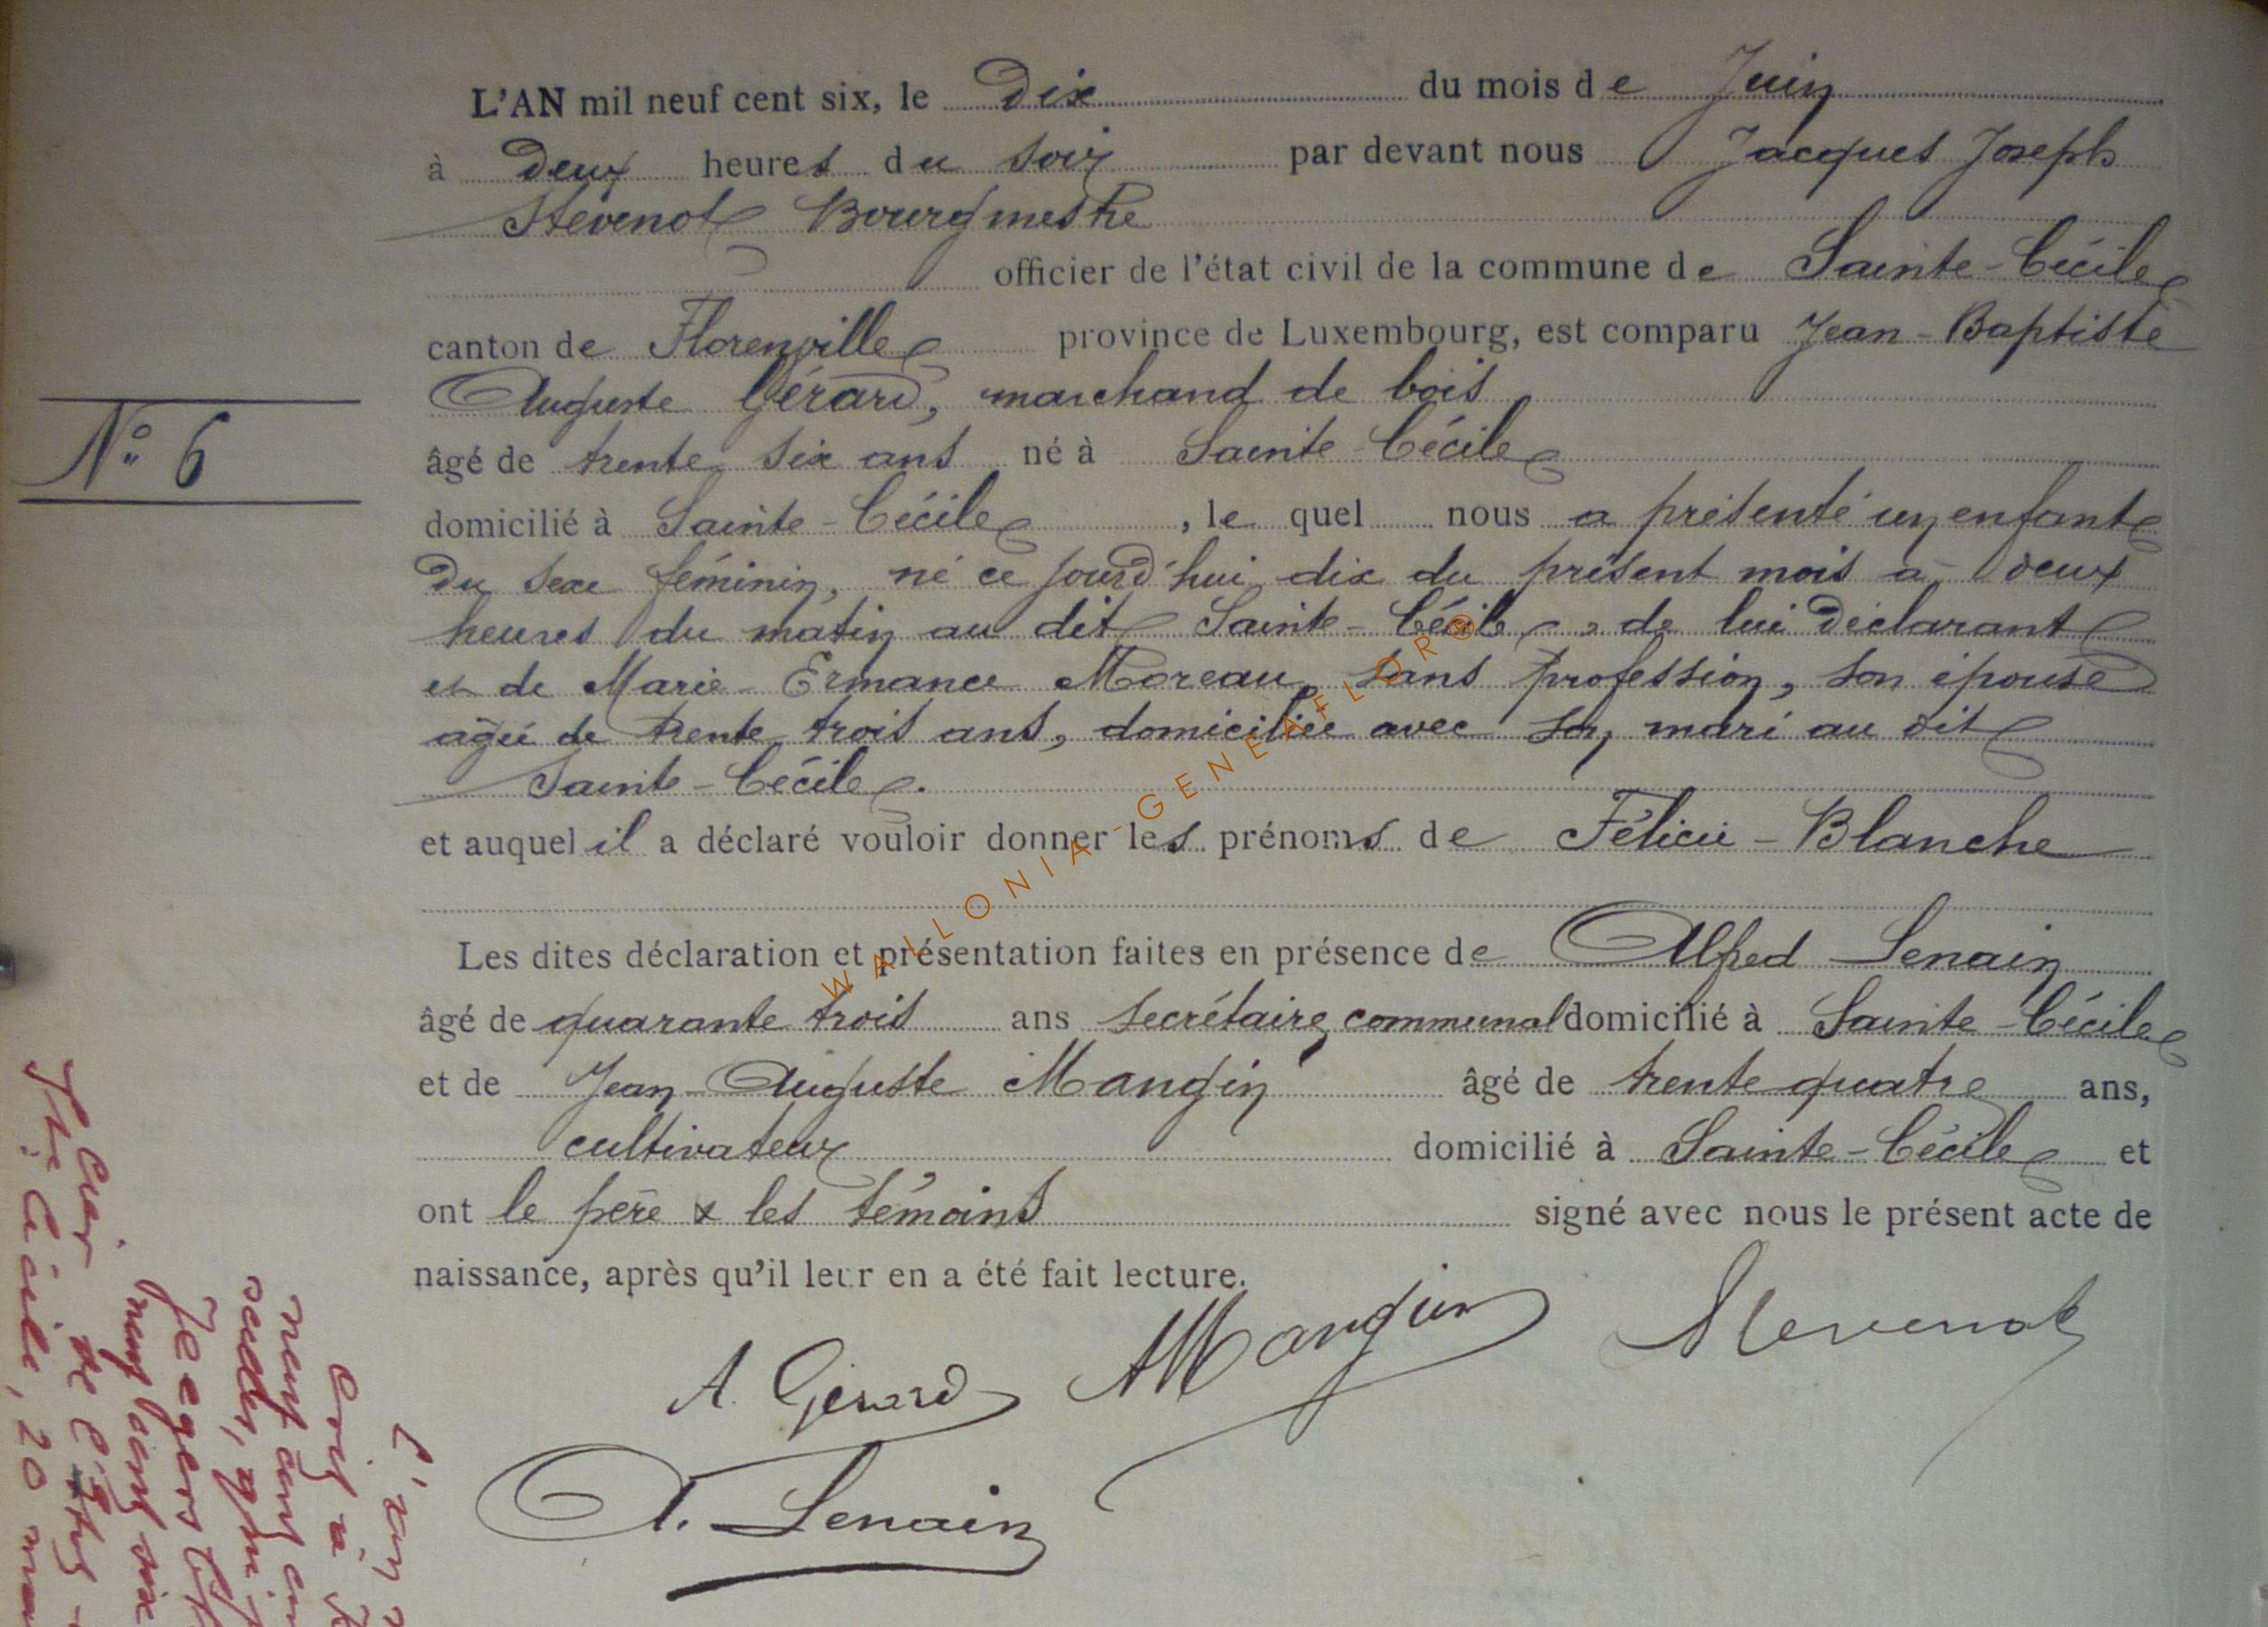 L'AN mil neuf cent six, le Dix du mois de Juin
à Deux heures du soir par devant nous Jacques Joseph
Stévenot Bourgmestre
officier de l'état civil de la commune de Sainte-Cécile
canton de Florenville province de Luxembourg, est comparu Jean-Baptiste
Auguste Gérard, marchand de bois
N° 6
âgé de trente six ans né à Sainte-Cécile
domicilié à Sainte-Cécile, le quel nous a présenté un enfant
Du sexe féminin, né ce jourd'hui dix du présent mois à deux
heures du matin au dit Sainte-Cécile, de lui Déclarant
et de Marie-Ermance Moreau, sans profession, son épouse
agée de trente trois ans, domiciliée avec son mari au dit
Sainte-Cécile.
et auquel il a déclaré vouloir donner les prénoms de Félicie-Blanche
Les dites déclaration et présentation faites en présence de Alfred Lenain
âgé de quarante trois ans secrétaire communal domicilié à Sainte-Cécile
et de Jean-Auguste Mangin âgé de trente quatre ans,
cultivateur domicilié à Sainte-Cécile et
ont le père & les témoins signé avec nous le présent acte de
naissance, après qu'il leur en a été fait lecture.
A. Gérard AMangin Stevenot
A. Lenain
WALLONIA-GENEAFLOR®
L'an
neuf cent
neuf cent six
Ste Cécile, 20